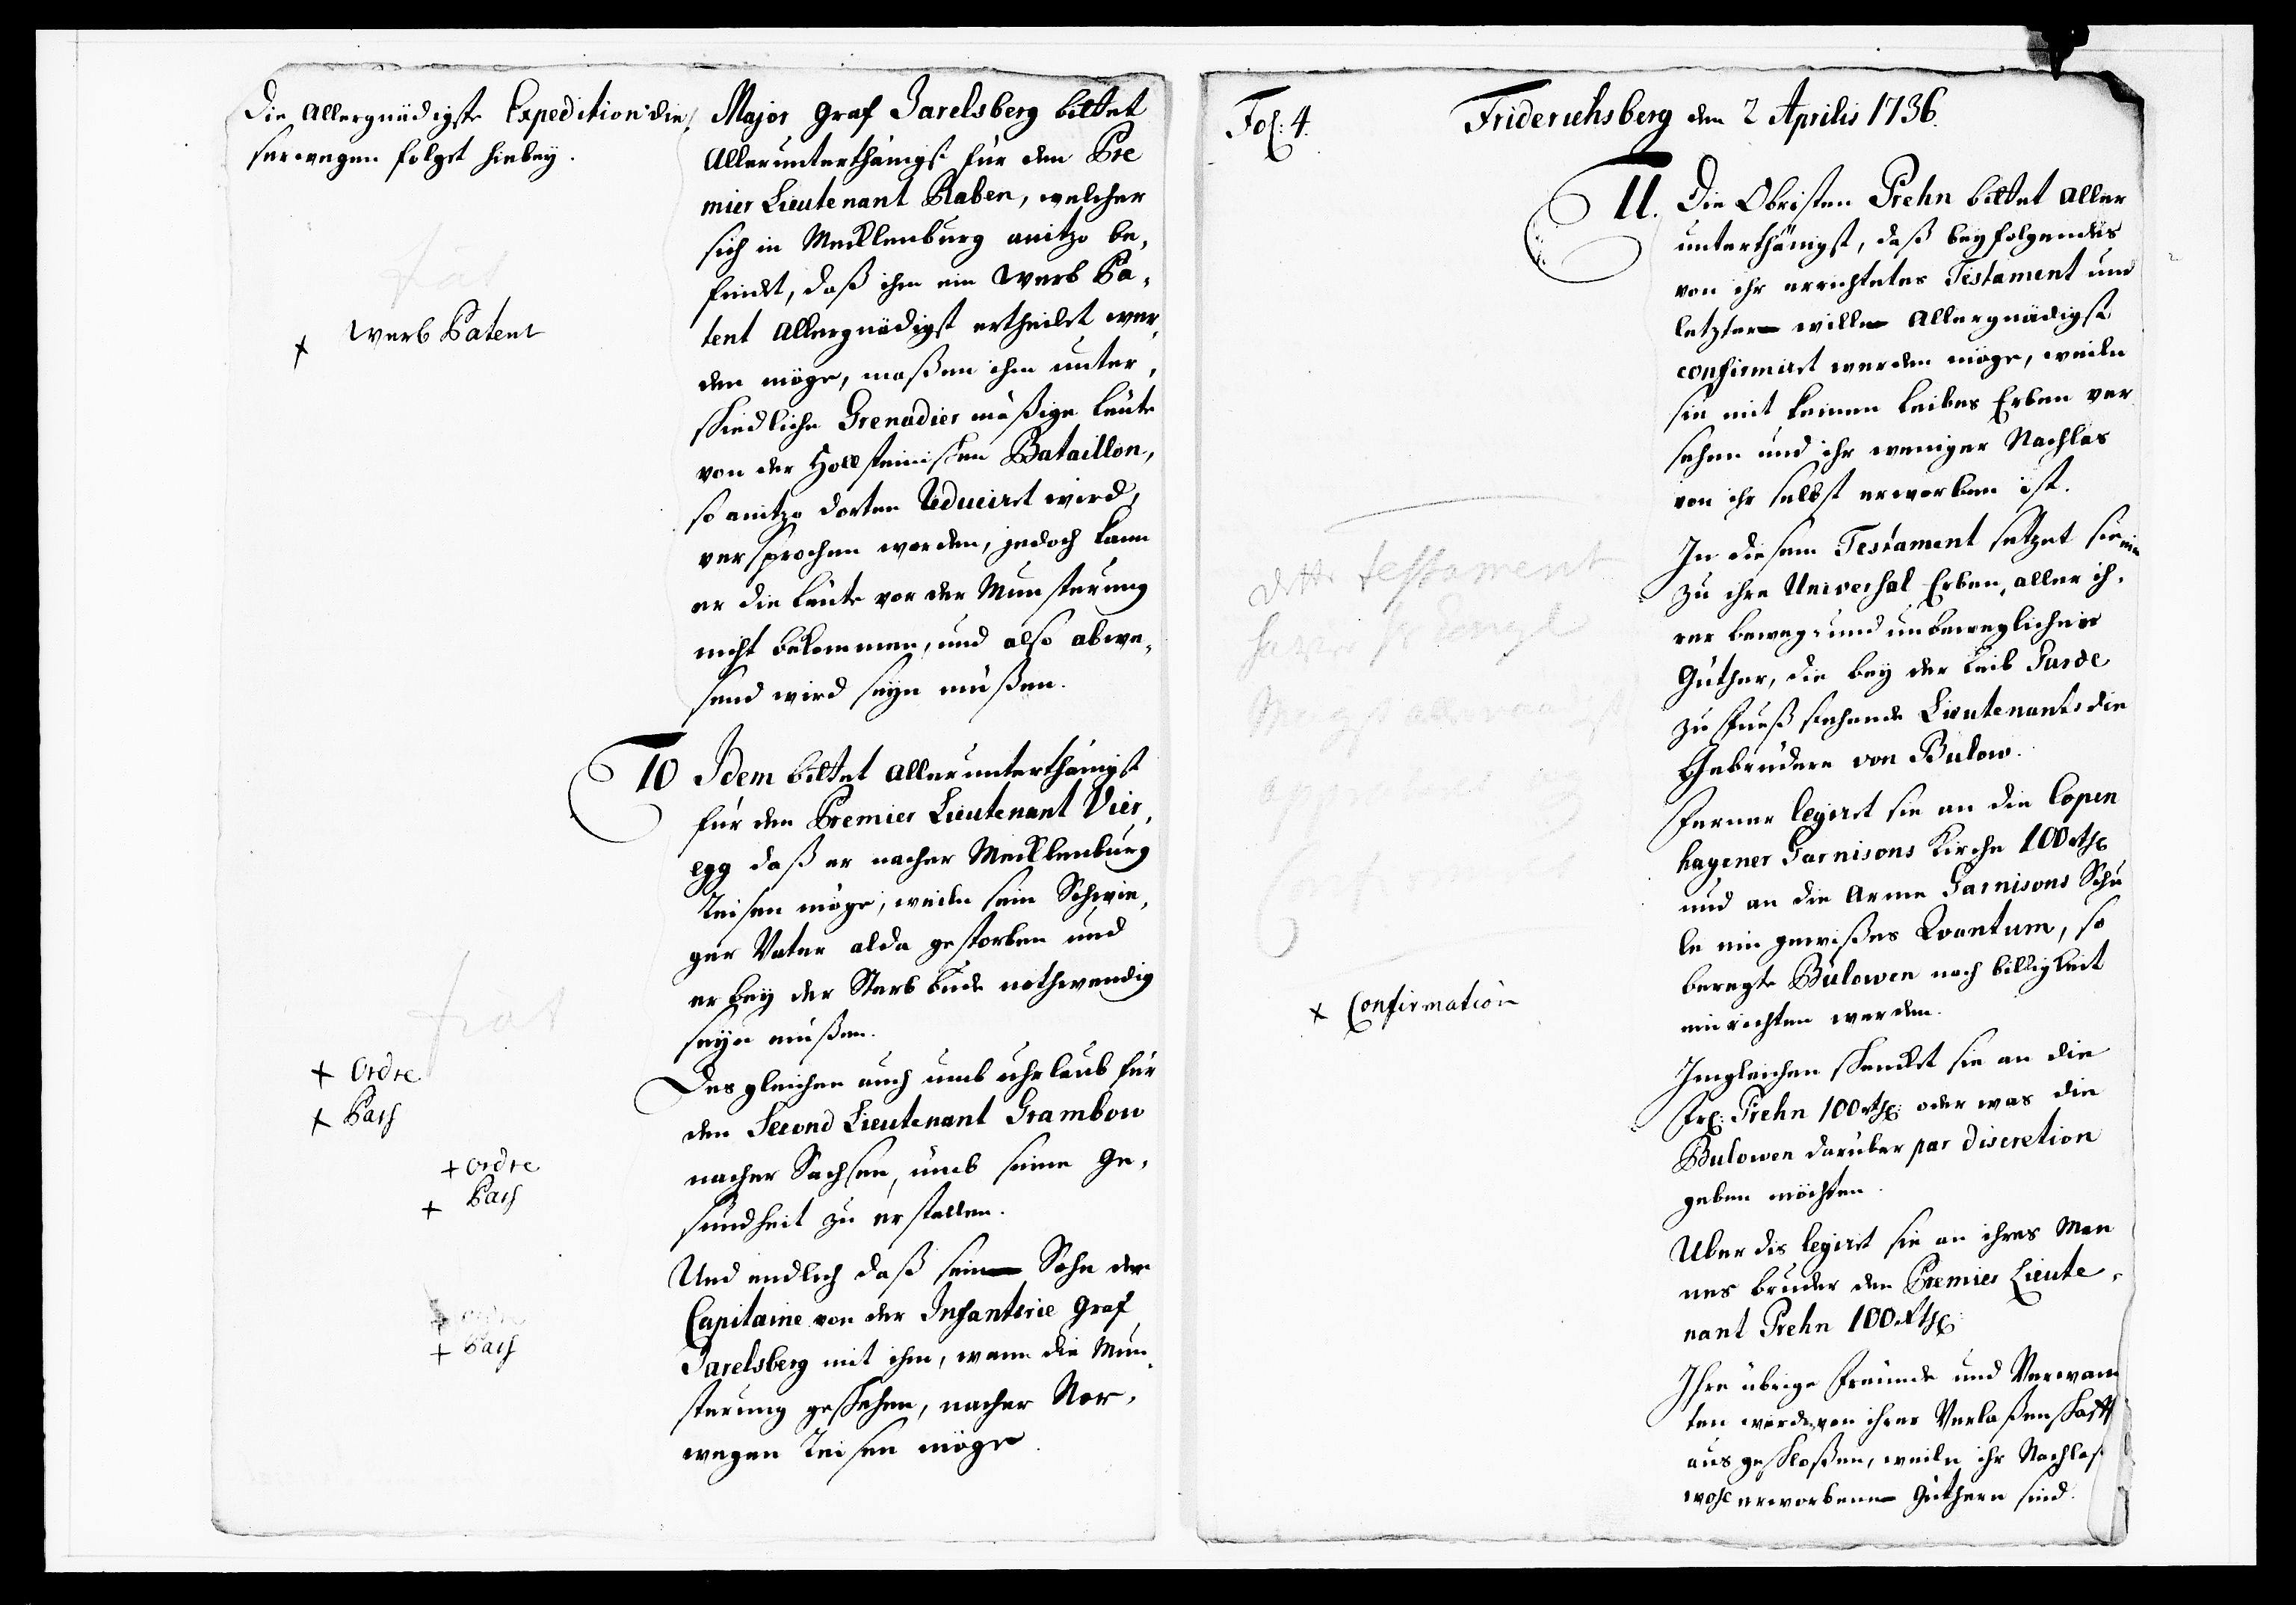 Die Allergnädigste Expedition die,
serwegen folget hiebey.
fiat
+ Werb Patent
+ Ordre
+ Pass
+ Ordre
+ Pass
+ Pass
Major Graf Jarelsberg bittet
Allerunterthänigst für den Pre
mier Lieutenant Raben, welcher
sich in Mecklenburg anitzo be,
findet, daß ihm ein Werb Pa,
tent Allergnädigst ertheilet wer,
den möge, maßen ihm unter,
schiedliche Grenadier mäßige Leute
von der Hollsteinischen Bataillon,
so anitzo dorten reduciret wird,
versprochen worden, jedoch kann
er die Leute vor der Munsterung
nicht bekommen, und also abwe,
send wird seyn müßen.
10 Idem bittet Allerunterthänigst
für den Premier Lieutenant Vier,
egg daß er nacher Mecklenburg
reisen möge, weiln sein Schwie,
ger Vater alda gestorben und
er bey der Sterb bude nothwendig
seyn müßen.
Desgleichen auch umb uhrlaub für
den Second Lieutenant Grambow
nacher Sachsen, umb seine Ge,
sundheit zu erstellen.
Und endlich daß sein Sohn der
Capitaine von der Infanterie Graf
Jarelsberg mit ihm, wann die Mun
sterung geschehen, nacher Nor,
wegen reisen möge.
Fol: 4.
Friderichsberg den 2 Aprilis 1736.
11. Die Obristen Prehn bittet Aller
unterthänigst, daß beyfolgendes
von ihr errichtetes Testament und
letzter wille Allergnädigst
confirmiret werden möge, weiln
sie mit keinen Leibes Erben ver
sehen und ihr weniger Nachlas
von ihr selbst erworben ist.
In diesem Testament setzet sie ein
zu ihre Universal Erben, aller ih,
rer beweg- und unbeweglicher
Güther, die bey der Leib Garde
zu Fueß stehende Lieutenants die
Gebrüdere von Bulow.
Ferner legiret sie an die Copen
hagener Garnisons Kirche 100 Rthlr
und an die Arme Garnisons Schu
le ein gewißes Qvantum, so
beregte Bülowen nach billigkeit
einrichten werden.
Imgleichen schencket sie an die
Frl: Prehn 100 Rthlr: oder was die
Bulowen darüber par discretion
geben möchten.
Uber dis legiret sie an ihres Man
nes bruder den Premier Lieute,
nant Prehn 100 Rthlr
Ihre übrige Freunde und Verwan
ten werden von ihrer Verlaßenschafft
ausgeschloßen, weiln ihr Nachlas
wohl erworbene Güthern sind.
Testament
+ Confirmation